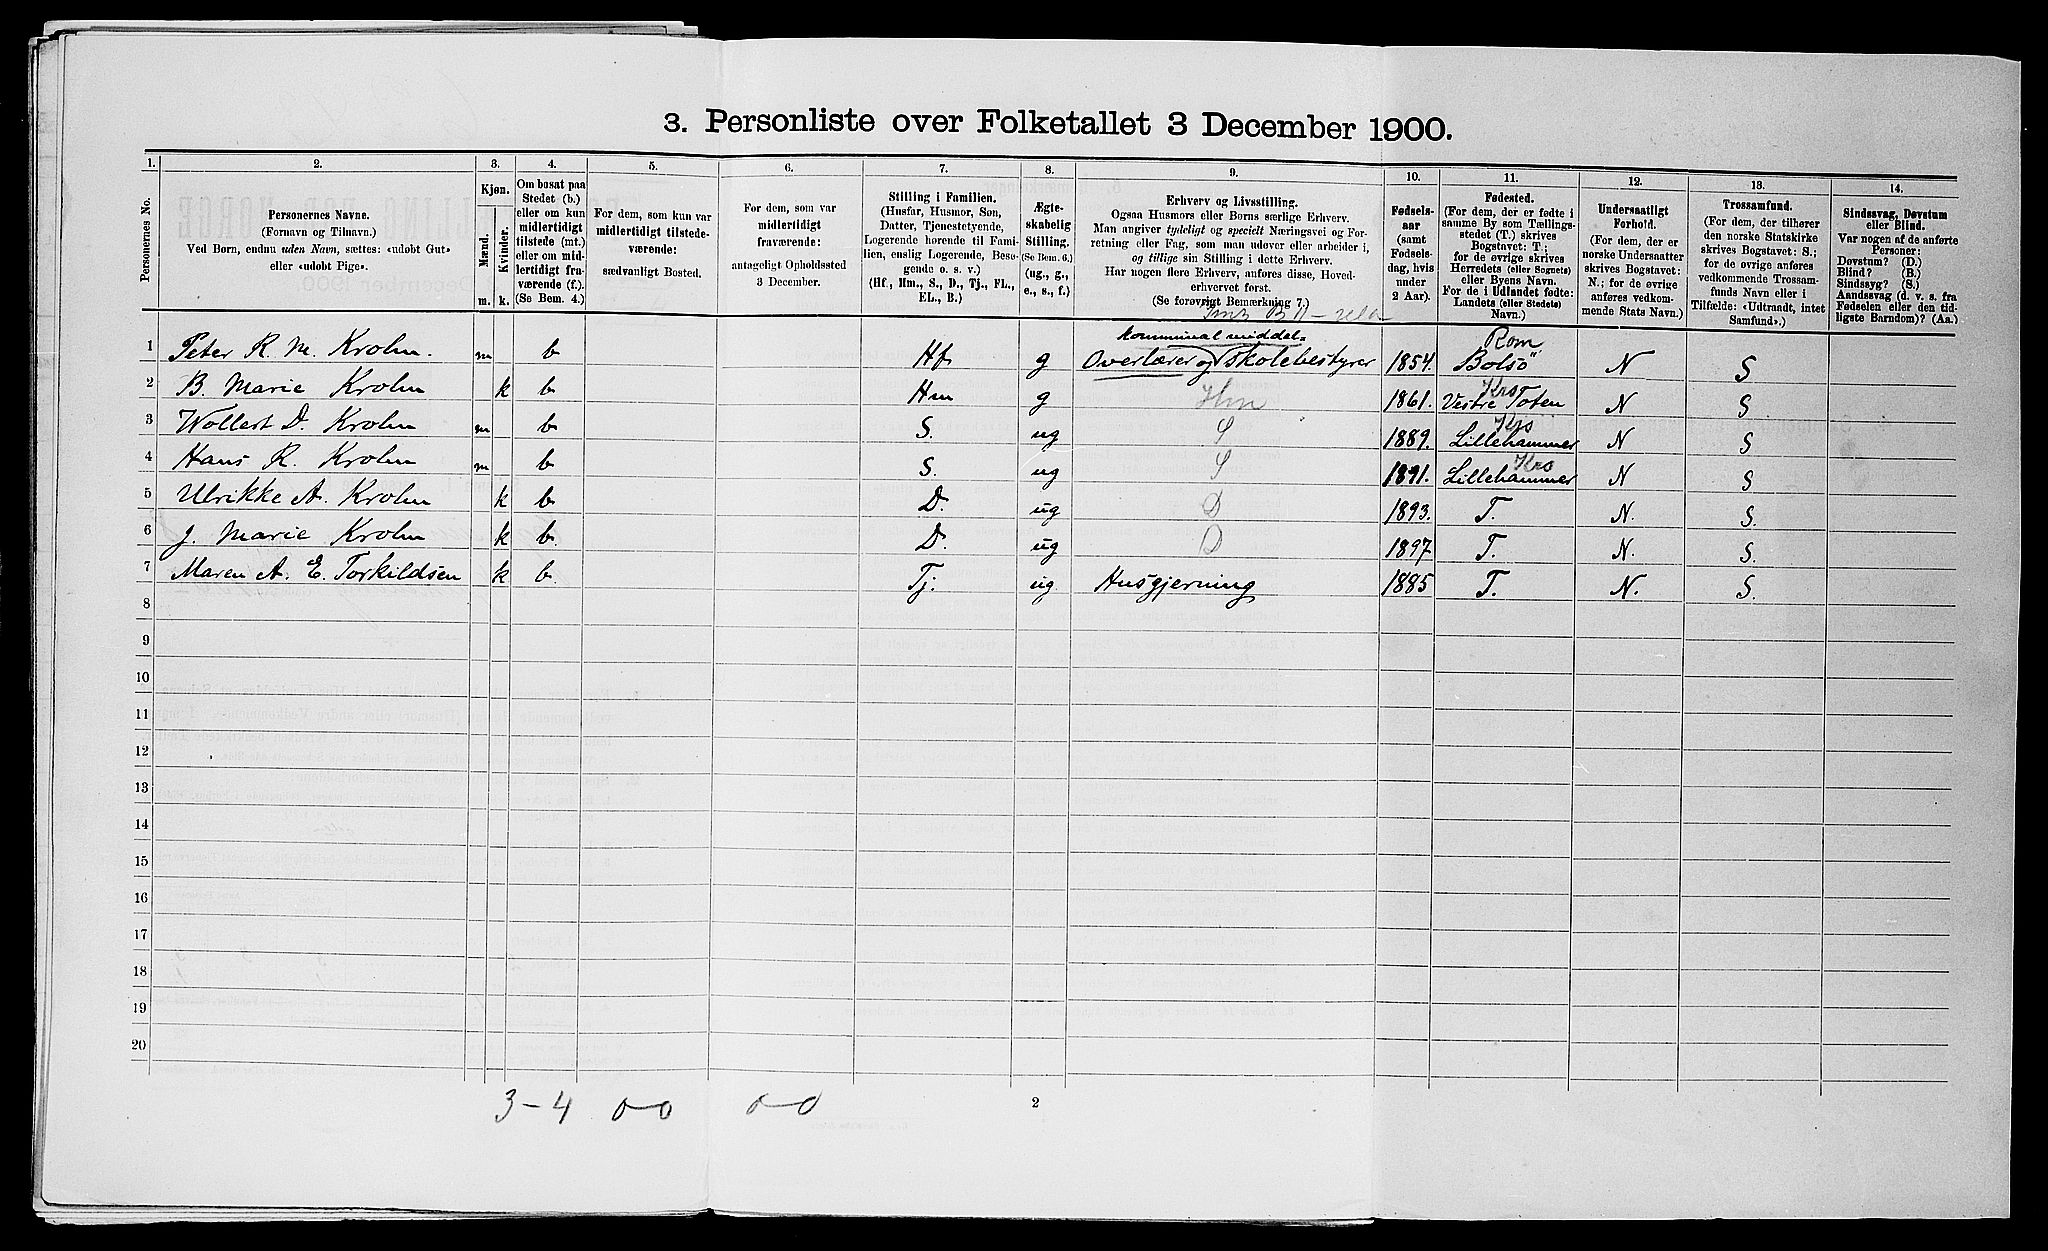 3. Personliste over Folketallet 3 December 1900.
1. 2. 3. 4. 5. 6. 7. 8. 9. 10. 11. 12. 13. 14.
Personernes No.
Personernes Navne.
(Fornavn og Tilnavn.)
Ved Børn, endnu uden Navn, sættes: «udøbt Gut»
eller «udøbt Pige».
Kjøn.
Mænd.
Kvinder.
m. k.
Om bosat paa
Stedet (b.)
eller om kun
midlertidigt
tilstede (mt.)
eller om mid-
lertidigt fra-
værende (f.).
(Se Bem. 4.)
For dem, som kun var
midlertidigt tilstede-
værende:
sædvanligt Bosted.
For dem, som var
midlertidigt
fraværende:
antageligt Opholdssted
3 December.
Stilling i Familien.
(Husfar, Husmor, Søn,
Datter, Tjenestetyende,
Logerende hørende til Fami-
lien, enslig Logerende, Besø-
gende o. s. v.)
(Hf., Hm., S., D., Tj., FL.,
EL., B.)
Ægte-
skabelig
Stilling.
(Se Bem. 6.)
(ug., g.,
e., s., f.)
Erhverv og Livsstilling.
Ogsaa Husmors eller Børns særlige Erhverv.
Man angiver tydeligt og specielt Næringsvei og For-
retning eller Fag, som man udøver eller arbeider i,
og tillige sin Stilling i dette Erhverv.
Har nogen flere Erhverv, anføres disse, Hoved-
erhvervet først.
(Se forøvrigt Bemærkning 7.)
Fødsels-
aar
(samt
Fødsels-
dag, hvis
under
2 Aar).
Fødested.
(For dem, der er fødte i
samme By som Tællings-
stedet (T.) skrives
Bogstavet: T;
for de øvrige skrives
Herredets (eller Sognets)
eller Byens Navn.
For de i Udlandet fødte:
Landets (eller Stedets)
Navn.)
Undersaatligt
Forhold.
(For dem, der er
norske Undersaatter
skrives Bogstavet:
N.; for de øvrige
anføres vedkom-
mende Stats Navn.)
Trossamfund.
(For dem, der tilhører
den norske Statskirke
skrives Bogstavet: S.;
for de øvrige anføres
vedkommende Trossam-
funds Navn eller i
Tilfælde: «Udtraadt, intet
Samfund».)
Sindssvag, Døvstum
eller Blind.
Var nogen af de anførte
Personer:
Døvstum? (D.)
Blind? (B.)
Sindssyg? (S.)
Aandssvag (d. v. s. fra
Fødselen eller den tid-
ligste Barndom)? (Aa.)
kommunal middel=
Rom
1 Peter R. M. Krohn. m b Hf g Overlærer og skolebestyrer 1854. Bolsö N S
Kro
2 B. Marie Krohn k b Hm g Hm 1861. Vestre Toten N S
Kro
3 Wollert D. Krohn m b S. ug S 1889. Lillehammer N S
Kro
4 Hans R. Krohn m b S. ug S 1891. Lillehammer N S
5 Ulrikke A. Krohn k b D. ug D 1893. T. N. S.
6 J. Marie Krohn k b. D. ug D 1897 T. N. S.
7 Maren A. E. Torkildsen k b. Tj. ug. Husgjerning 1885 T. N. S.
8
9
10
11
12
13
14
15
16
17
18
19
20
3-4 0-0 0-0
2